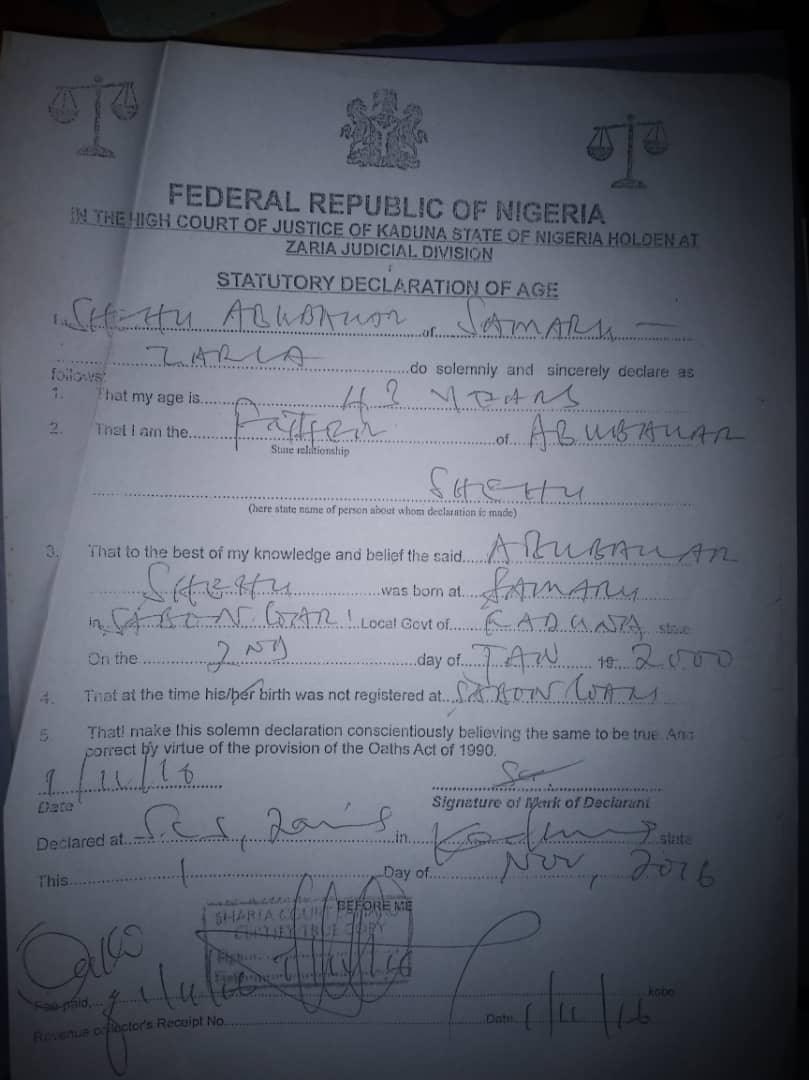 FEDERAL REPUBLIC OF NIGERIA
IN THE HIGH COURT OF JUSTICE OF KADUNA STATE OF NIGERIA HOLDEN AT
ZARIA JUDICIAL DIVISION
STATUTORY DECLARATION OF AGE
I, SHEHU ABUBAKAR of SAMARU –
ZARIA do solemnly and sincerely declare as
follows:
1. That my age is 43 YEARS
2. That I am the Father of ABUBAKAR
State relationship
SHEHU
(here state name of person about whom declaration is made)
3. That to the best of my knowledge and belief the said ABUBAKAR
SHEHU was born at SAMARU
in SABON GARI Local Govt of KADUNA state
On the 2ND day of JAN 19 2000
4. That at the time his/her birth was not registered at SABON GARI
5. That I make this solemn declaration conscientiously believing the same to be true. And
correct by virtue of the provision of the Oaths Act of 1990.
1/11/16
Date
Signature of Mark of Declarant
Declared at in Kaduna state
This 1 Day of Nov, 2016
BEFORE ME
SHARIA COURT
CERTIFY TRUE COPY
Fee paid kobo
Revenue collector's Receipt No. Date 1/11/16